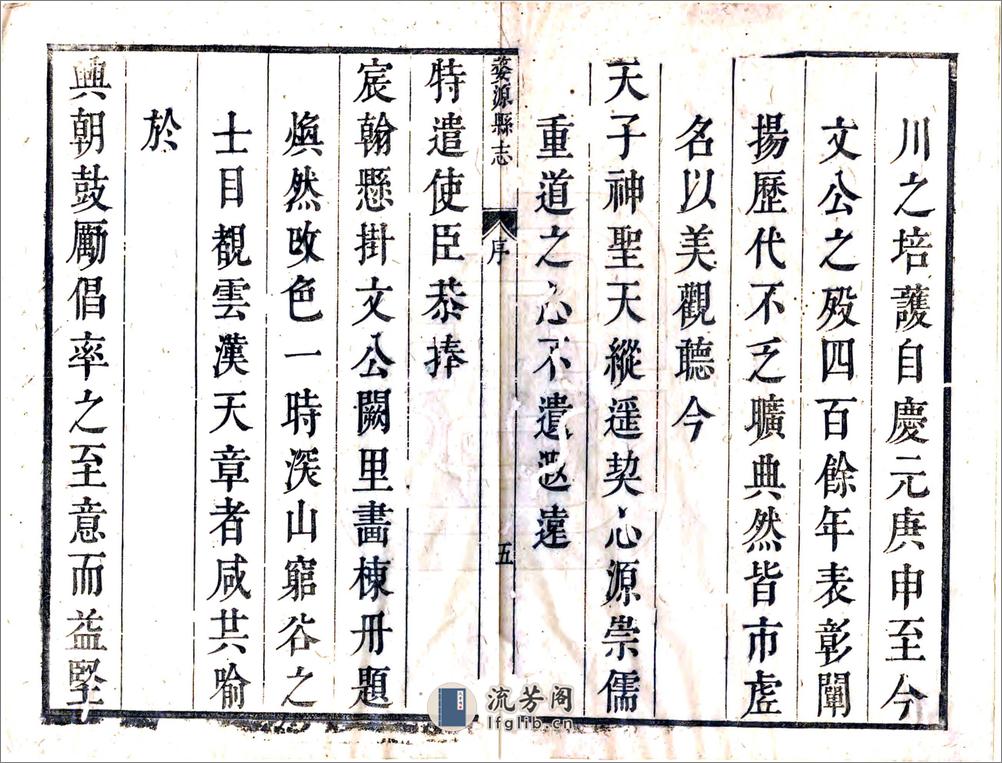 川之培護自慶元庚申至今
文公之殁四百餘年表彰闡
揚歷代不乏曠典然皆市虛
名以美觀聽今
天子神聖天縱遥契心源崇儒
重道之心不遺遐遠
婺源縣志
序
五
特遣使臣恭捧
宸翰懸掛文公闕里畵棟丹題
煥然改色一時深山窮谷之
士目覩雲漢天章者咸共喻
於
興朝鼓勵倡率之至意而益堅
流芳阁
lfglib.cn